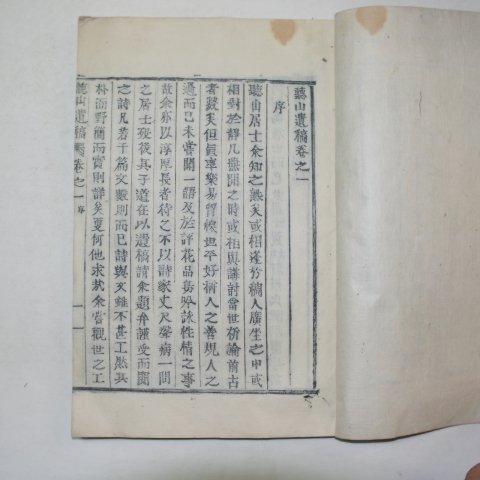 聽山遺稿卷之一
序
聽山居士余知之熟矣或相逢於稠人廣坐之中或
相對於靜几燕閒之時或相與講討當世評論前古
者數矣但眞率樂易質樸坦平好稱人之善規人之
過而已未嘗聞一語及於評花品 詠性情之事
故余亦以淳厚長者待之不以詩家丈尺聲病一問
之居士歿後其子道在以遺稿請余題弁謹受而閱
之詩凡若干篇文數則而已詩與文雖不甚工然其
朴而野簡而實則詳矣夏何他求哉余嘗觀世之工
聽山遺稿 卷之一 序 一